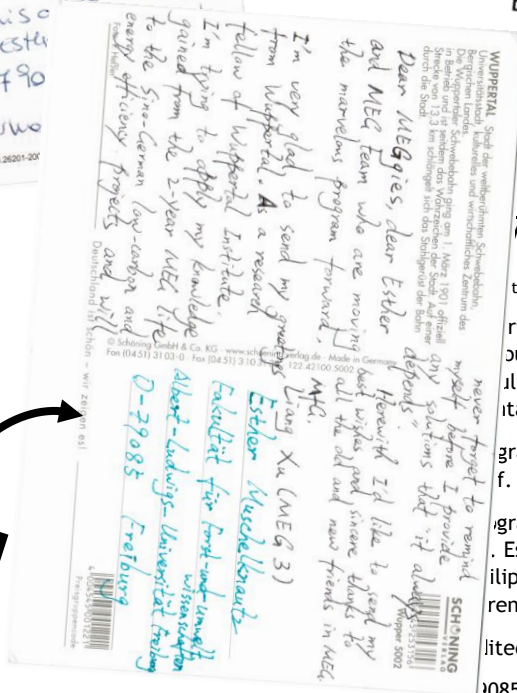 WUPPERTAL Stadt der weltberühmten Schwebebahn,
Universitätsstadt, kulturelles und wirtschaftliches Zentrum des
Bergischen Landes.
Die Wuppertaler Schwebebahn ging am 1. März 1901 offiziell
in Betrieb und ist seitdem das Wahrzeichen der Stadt. Auf einer
Strecke von 13,3 km schlängelt sich das Stahlgerüst der Bahn
durch die Stadt.
Dear MEGgies, dear Esther
and MEG team who are moving
the marvelous program forward,
I'm very glad to send my greetings
from Wuppertal. As a research
fellow of Wuppertal Institute,
I'm trying to apply my knowledge
gained from the 2-year MEG life
to the Sino-German low-carbon and
energy efficiency projects and will
never forget to remind
myself before I provide
any solutions that "it always
depends".
Herewith I'd like to send my
best wishes and sincere thanks to
all the old and new friends in MEG.
MEG.
Liang Xu (MEG 3)
Esther Muschelknautz
Fakultät für Forst- und Umwelt
wissenschaften
Albert-Ludwigs-Universität Freiburg
D-79085 Freiburg
SCHÖNING
VERLAG
Wupper 5002
© Schöning GmbH & Co. KG · www.schoening-verlag.de · Made in Germany
Fon (04 51) 3103-0 · Fax (04 51) 3103
122.42100.5002
Deutschland ist schön – wir zeigen es!
Preisgruppencode
4 004545 001221